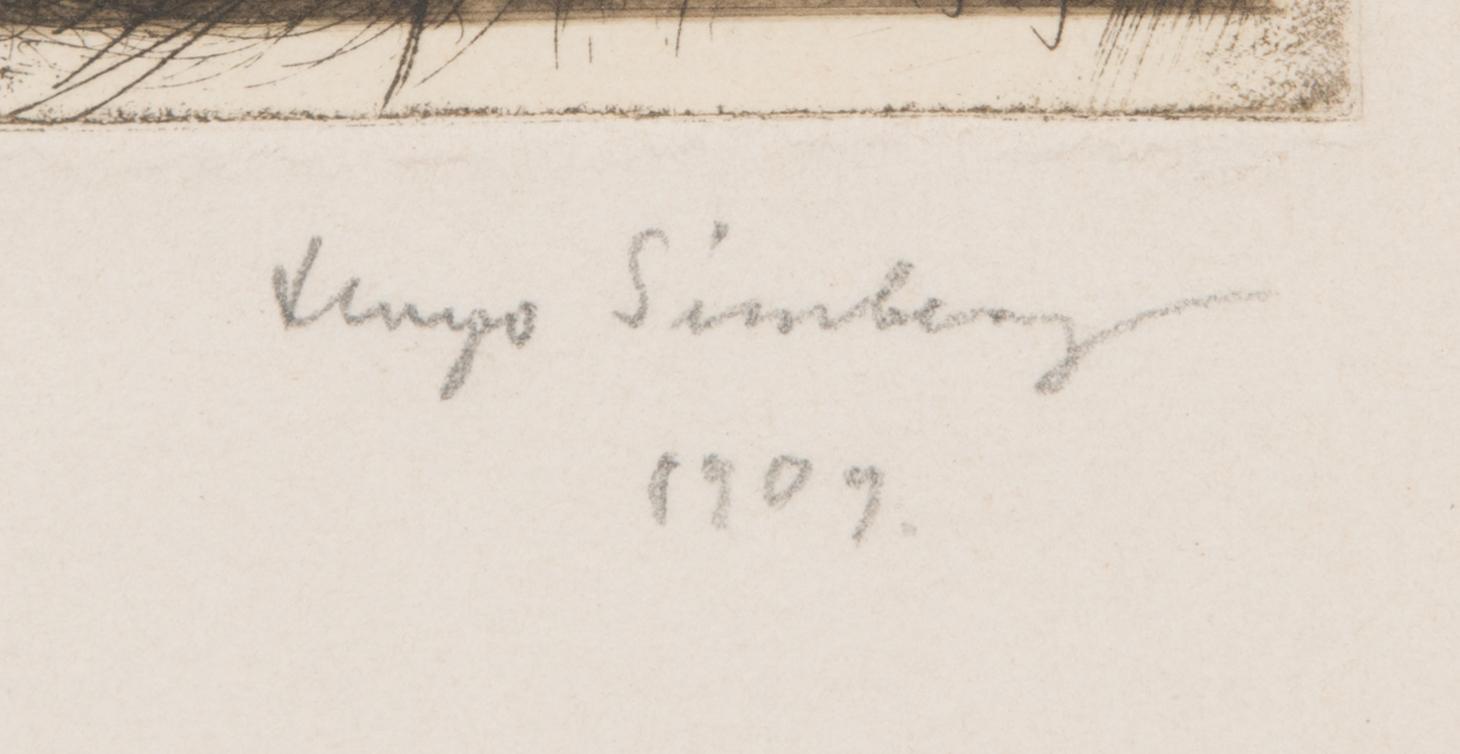 Hugo Simberg
1909.